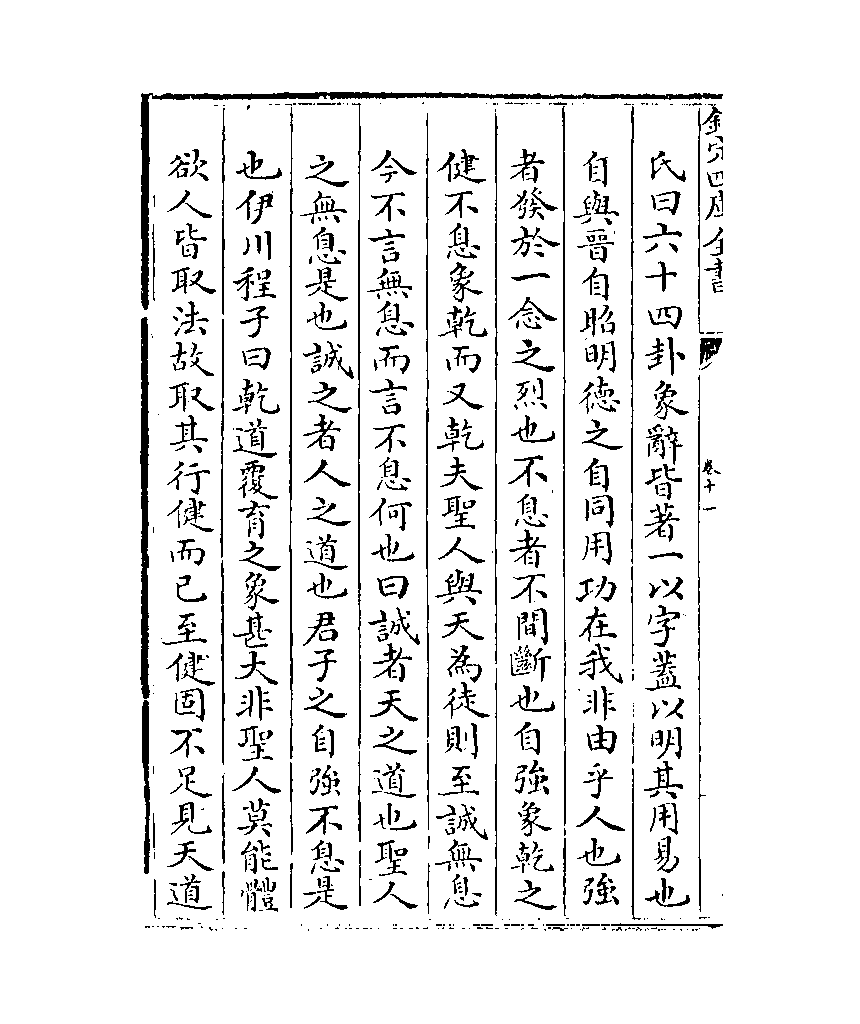 欽定四庫全書
卷十一
氏曰六十四卦象辭皆著一以字蓋以明其用易也
自與晉自昭明德之自同用功在我非由乎人也強
者發於一念之烈也不息者不間斷也自強象乾之
健不息象乾而又乾夫聖人與天為徒則至誠無息
今不言無息而言不息何也曰誠者天之道也聖人
之無息是也誠之者人之道也君子之自強不息是
也伊川程子曰乾道覆育之象甚大非聖人莫能體
欲人皆取法故取其行健而已至健固不足見天道